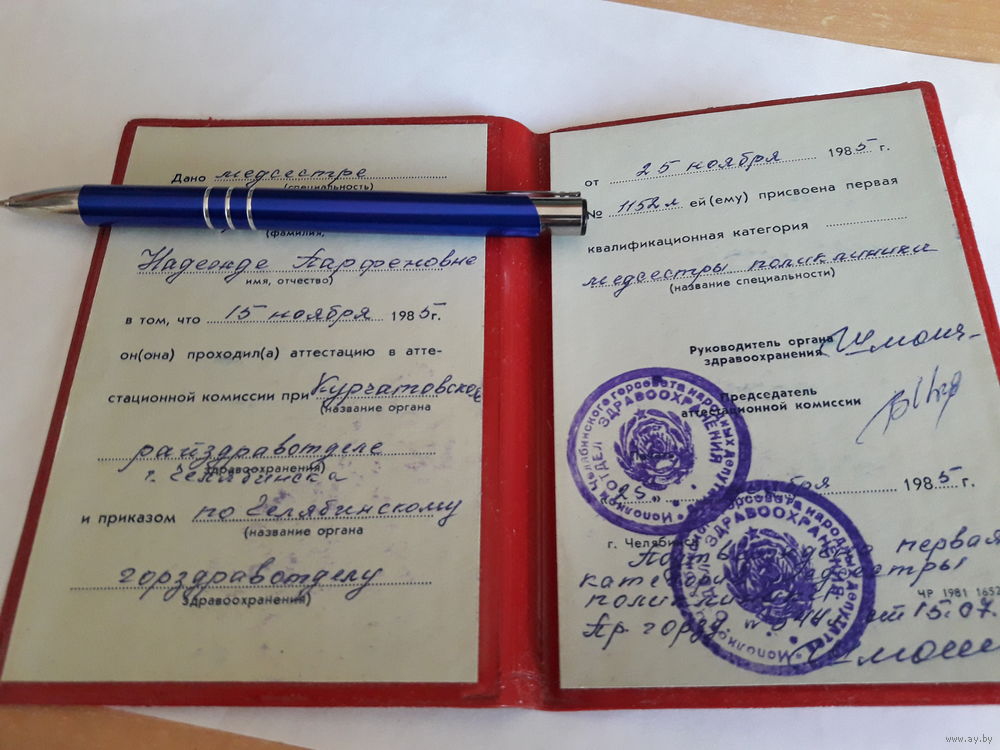 Дано медсестре
(специальность)
(фамилия,
Надежде Парфеновне
имя, отчество)
в том, что 15 ноября 1985 г.
он(она) проходил(а) аттестацию в атте-
стационной комиссии при Курчатовском
(название органа
райздравотделе
здравоохранения)
г. Челябинска
и приказом по Челябинскому
(название органа
горздравотделу
здравоохранения)
от 25 ноября 1985 г.
№ 1152л ей(ему) присвоена первая
квалификационная категория
медсестры поликлиники
(название специальности)
Руководитель органа
здравоохранения
Председатель
аттестационной комиссии
Исполком Челябинского горсовета народных депутатов
ОТДЕЛ ЗДРАВООХРАНЕНИЯ
"25" ября 1985 г.
г. Челябинск
ЗДРАВООХРАНЕНИЯ
горсовета народных депутатов
первая
категори медсестры
поликли
ЧР 1981 1652
Пр. горзд от 15.07.
www.ay.by